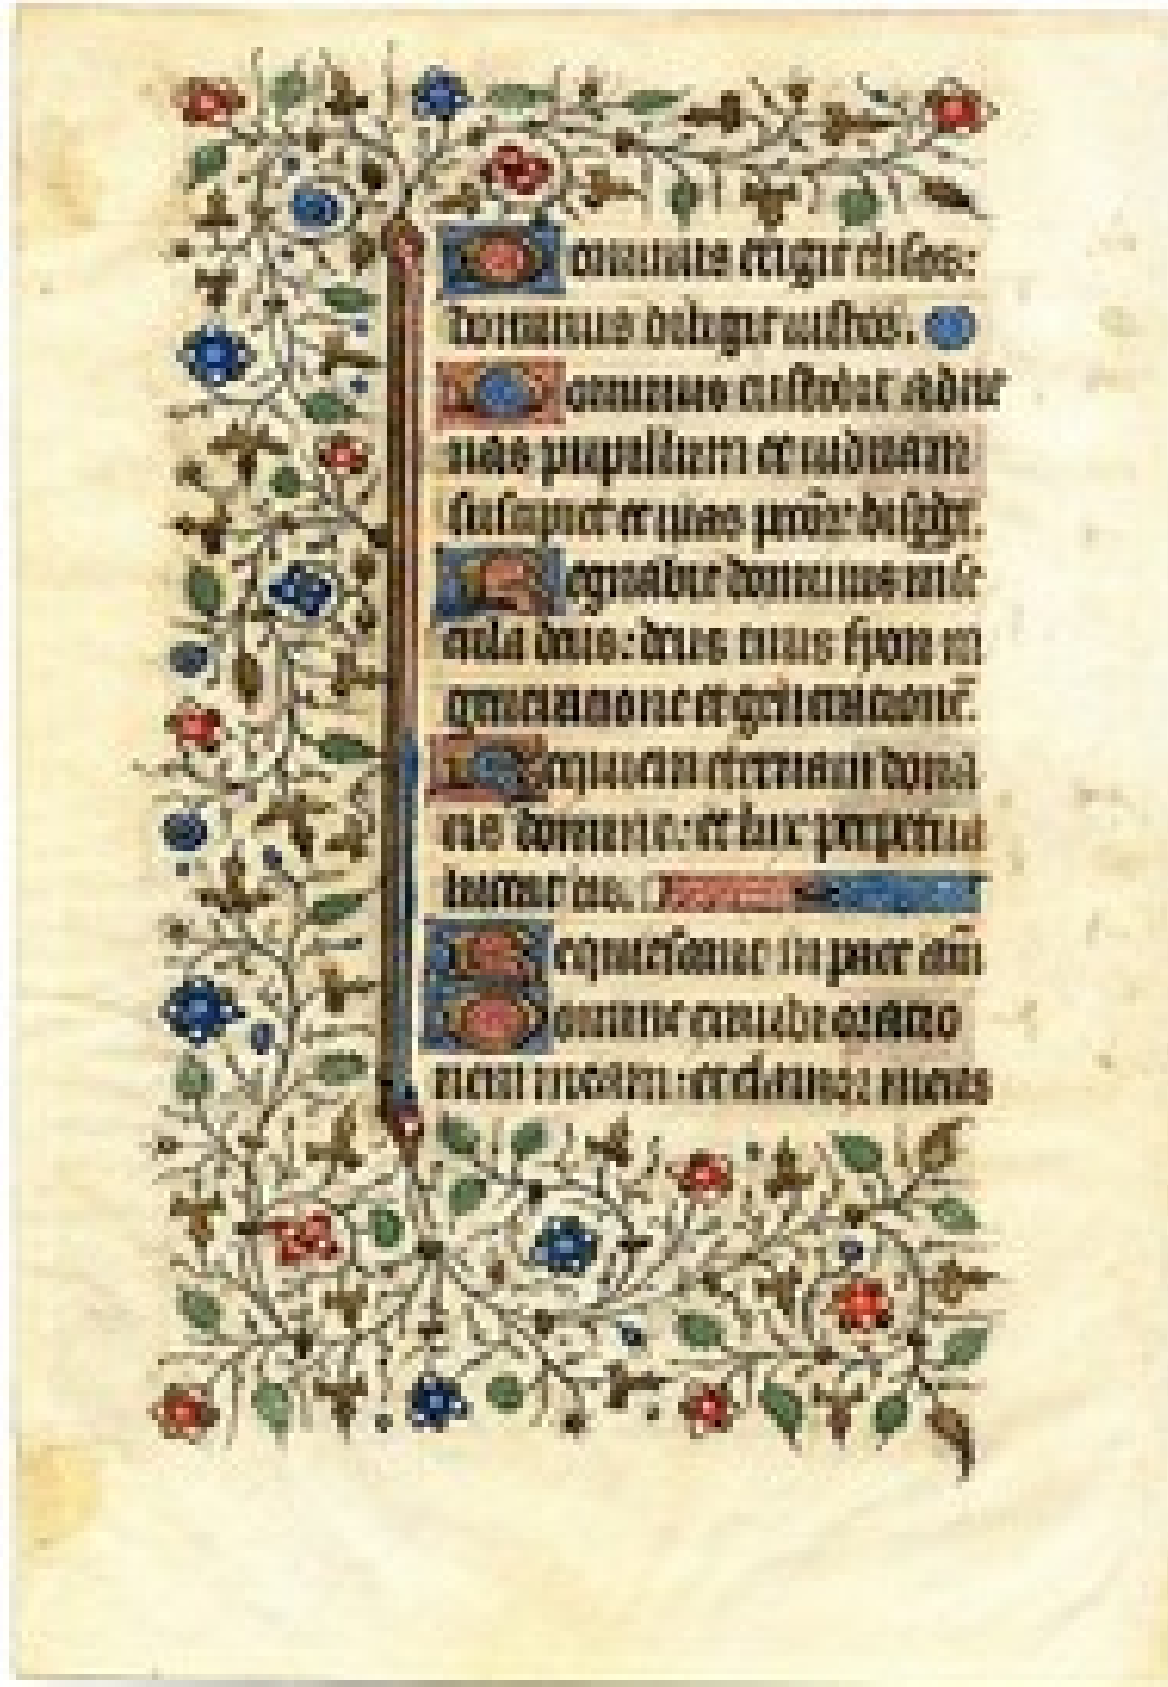 Dominus erigit elisos:
dominus diligit iustos.
Dominus custodit adue
nas pupillum et uiduam
suscipiet et uias pctor̄ disp̄det.
Regnabit dominus in se
cula deus: deus tuus syon in
generatione et generationē.
Requiem eternam dona
eis domine: et lux perpetua
luceat eis.
Requiescant in pace am̄
Domine exaudi oratio
nem meam: et clamor meus